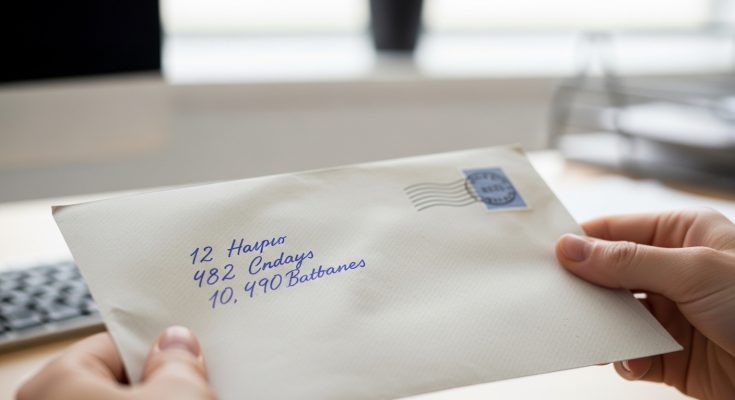 12
482 Cndays
10, 490 Batbanes